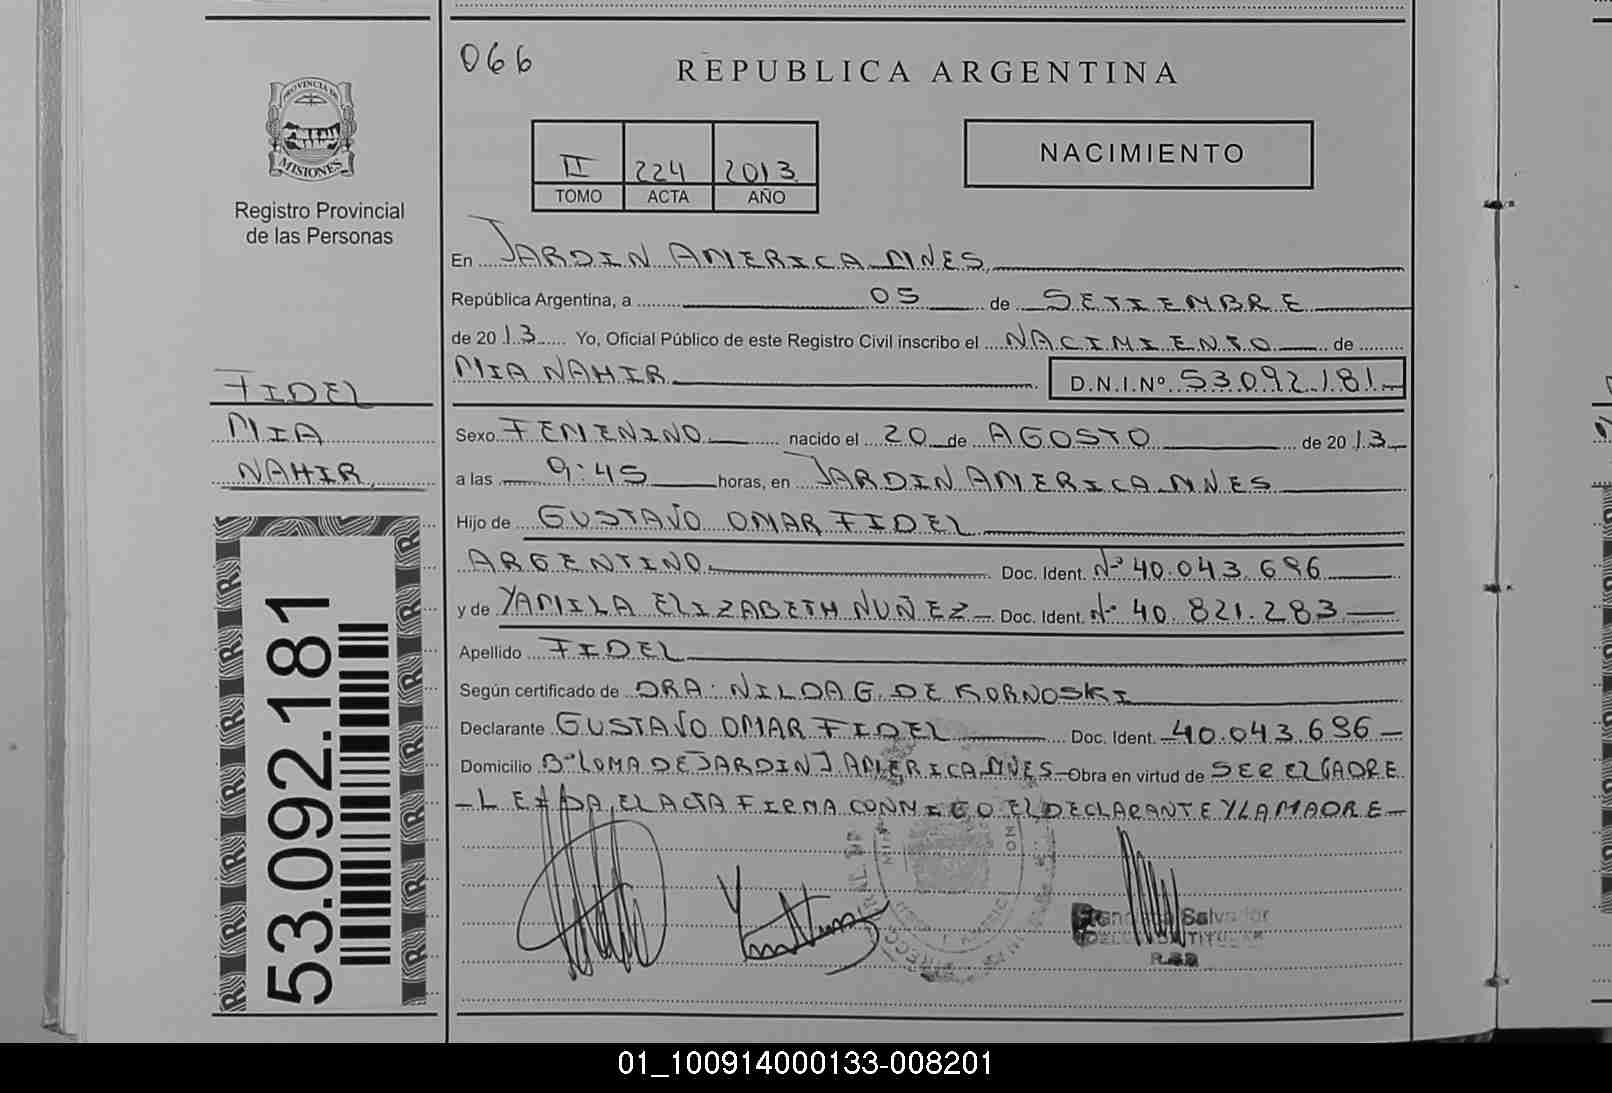 066
REPUBLICA ARGENTINA
PROVINCIA DE
MISIONES
Registro Provincial
de las Personas
II 224 2013
TOMO ACTA AÑO
NACIMIENTO
En JARDIN AMERICA MNES
República Argentina, a 05 de SETIEMBRE
de 2013 Yo, Oficial Público de este Registro Civil inscribo el NACIMIENTO de
MIA NAHIR D.N.I.Nº 53.092.181
FIDEL
MIA
NAHIR
Sexo FEMENINO nacido el 20 de AGOSTO de 2013
a las 9:45 horas, en JARDIN AMERICA MNES
Hijo de GUSTAVO OMAR FIDEL
ARGENTINO Doc. Ident. Nº 40.043.696
y de YAMILA ELIZABETH NUÑEZ Doc. Ident. Nº 40.821.283
Apellido FIDEL
Según certificado de DRA: NILDA G. DE KORNOSKI
Declarante GUSTAVO OMAR FIDEL Doc. Ident. 40.043.696
Domicilio Bº LOMA DE JARDIN J AMERICA MNES Obra en virtud de SER EL PADRE
LEIDA EL ACTA FIRMA CONMIGO EL DECLARANTE Y LA MADRE
53.092.181
Salvador
TITULAR
01_100914000133-008201